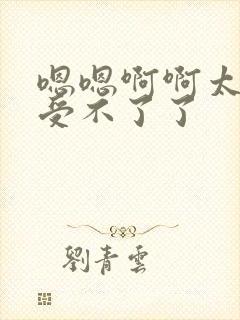 嗯嗯啊啊太
受不了了
劉青雲